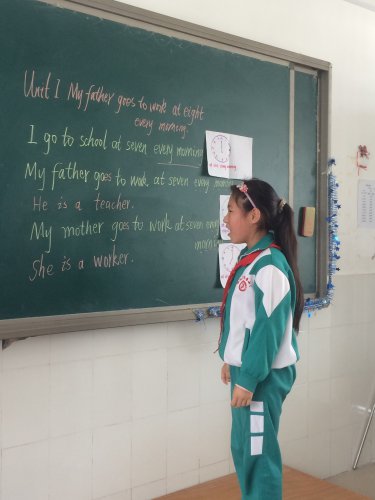 Unit 1 My father goes to work at eight
every morning.
I go to school at seven every morning
My father goes to work at seven every
He is a teacher.
My mother goes to work at seven every
morning
She is a worker.